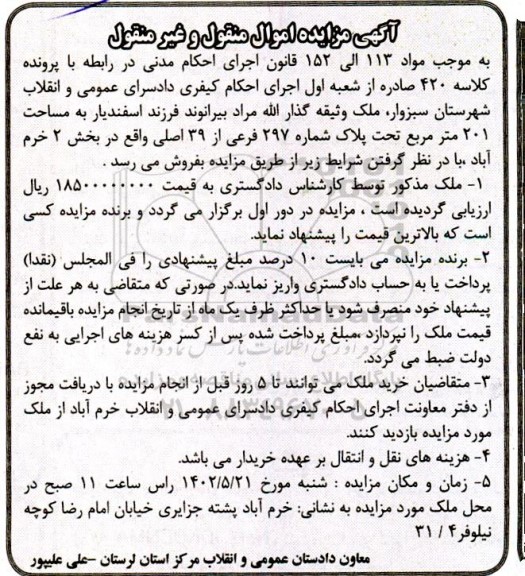 آگهی مزایده اموال منقول و غیر منقول
به موجب مواد ۱۱۳ الی ۱۵۲ قانون اجرای احکام مدنی در رابطه با پرونده
کلاسه ۴۲۰ صادره از شعبه اول اجرای احکام کیفری دادسرای عمومی و انقلاب
شهرستان سبزوار، ملک وثیقه گذار الله مراد بیرانوند فرزند اسفندیار به مساحت
۲۰۱ متر مربع تحت پلاک شماره ۲۹۷ فرعی از ۳۹ اصلی واقع در بخش ۲ خرم
آباد ،با در نظر گرفتن شرایط زیر از طریق مزایده بفروش می رسد .
۱- ملک مذکور توسط کارشناس دادگستری به قیمت ۱۸۵۰۰۰۰۰۰۰۰ ریال
ارزیابی گردیده است ، مزایده در دور اول برگزار می گردد و برنده مزایده کسی
است که بالاترین قیمت را پیشنهاد نماید.
۲- برنده مزایده می بایست ۱۰ درصد مبلغ پیشنهادی را فی المجلس (نقدا)
پرداخت یا به حساب دادگستری واریز نماید.در صورتی که متقاضی به هر علت از
پیشنهاد خود منصرف شود یا حداکثر ظرف یک ماه از تاریخ انجام مزایده باقیمانده
قیمت ملک را نپردازد ،مبلغ پرداخت شده پس از کسر هزینه های اجرایی به نفع
دولت ضبط می گردد.
۳- متقاضیان خرید ملک می توانند تا ۵ روز قبل از انجام مزایده با دریافت مجوز
از دفتر معاونت اجرای احکام کیفری دادسرای عمومی و انقلاب خرم آباد از ملک
مورد مزایده بازدید کنند.
۴- هزینه های نقل و انتقال بر عهده خریدار می باشد.
۵- زمان و مکان مزایده : شنبه مورخ ۱۴۰۲/۵/۲۱ راس ساعت ۱۱ صبح در
محل ملک مورد مزایده به نشانی: خرم آباد پشته جزایری خیابان امام رضا کوچه
نیلوفر۴ / ۳۱
معاون دادستان عمومی و انقلاب مرکز استان لرستان –علی علیپور